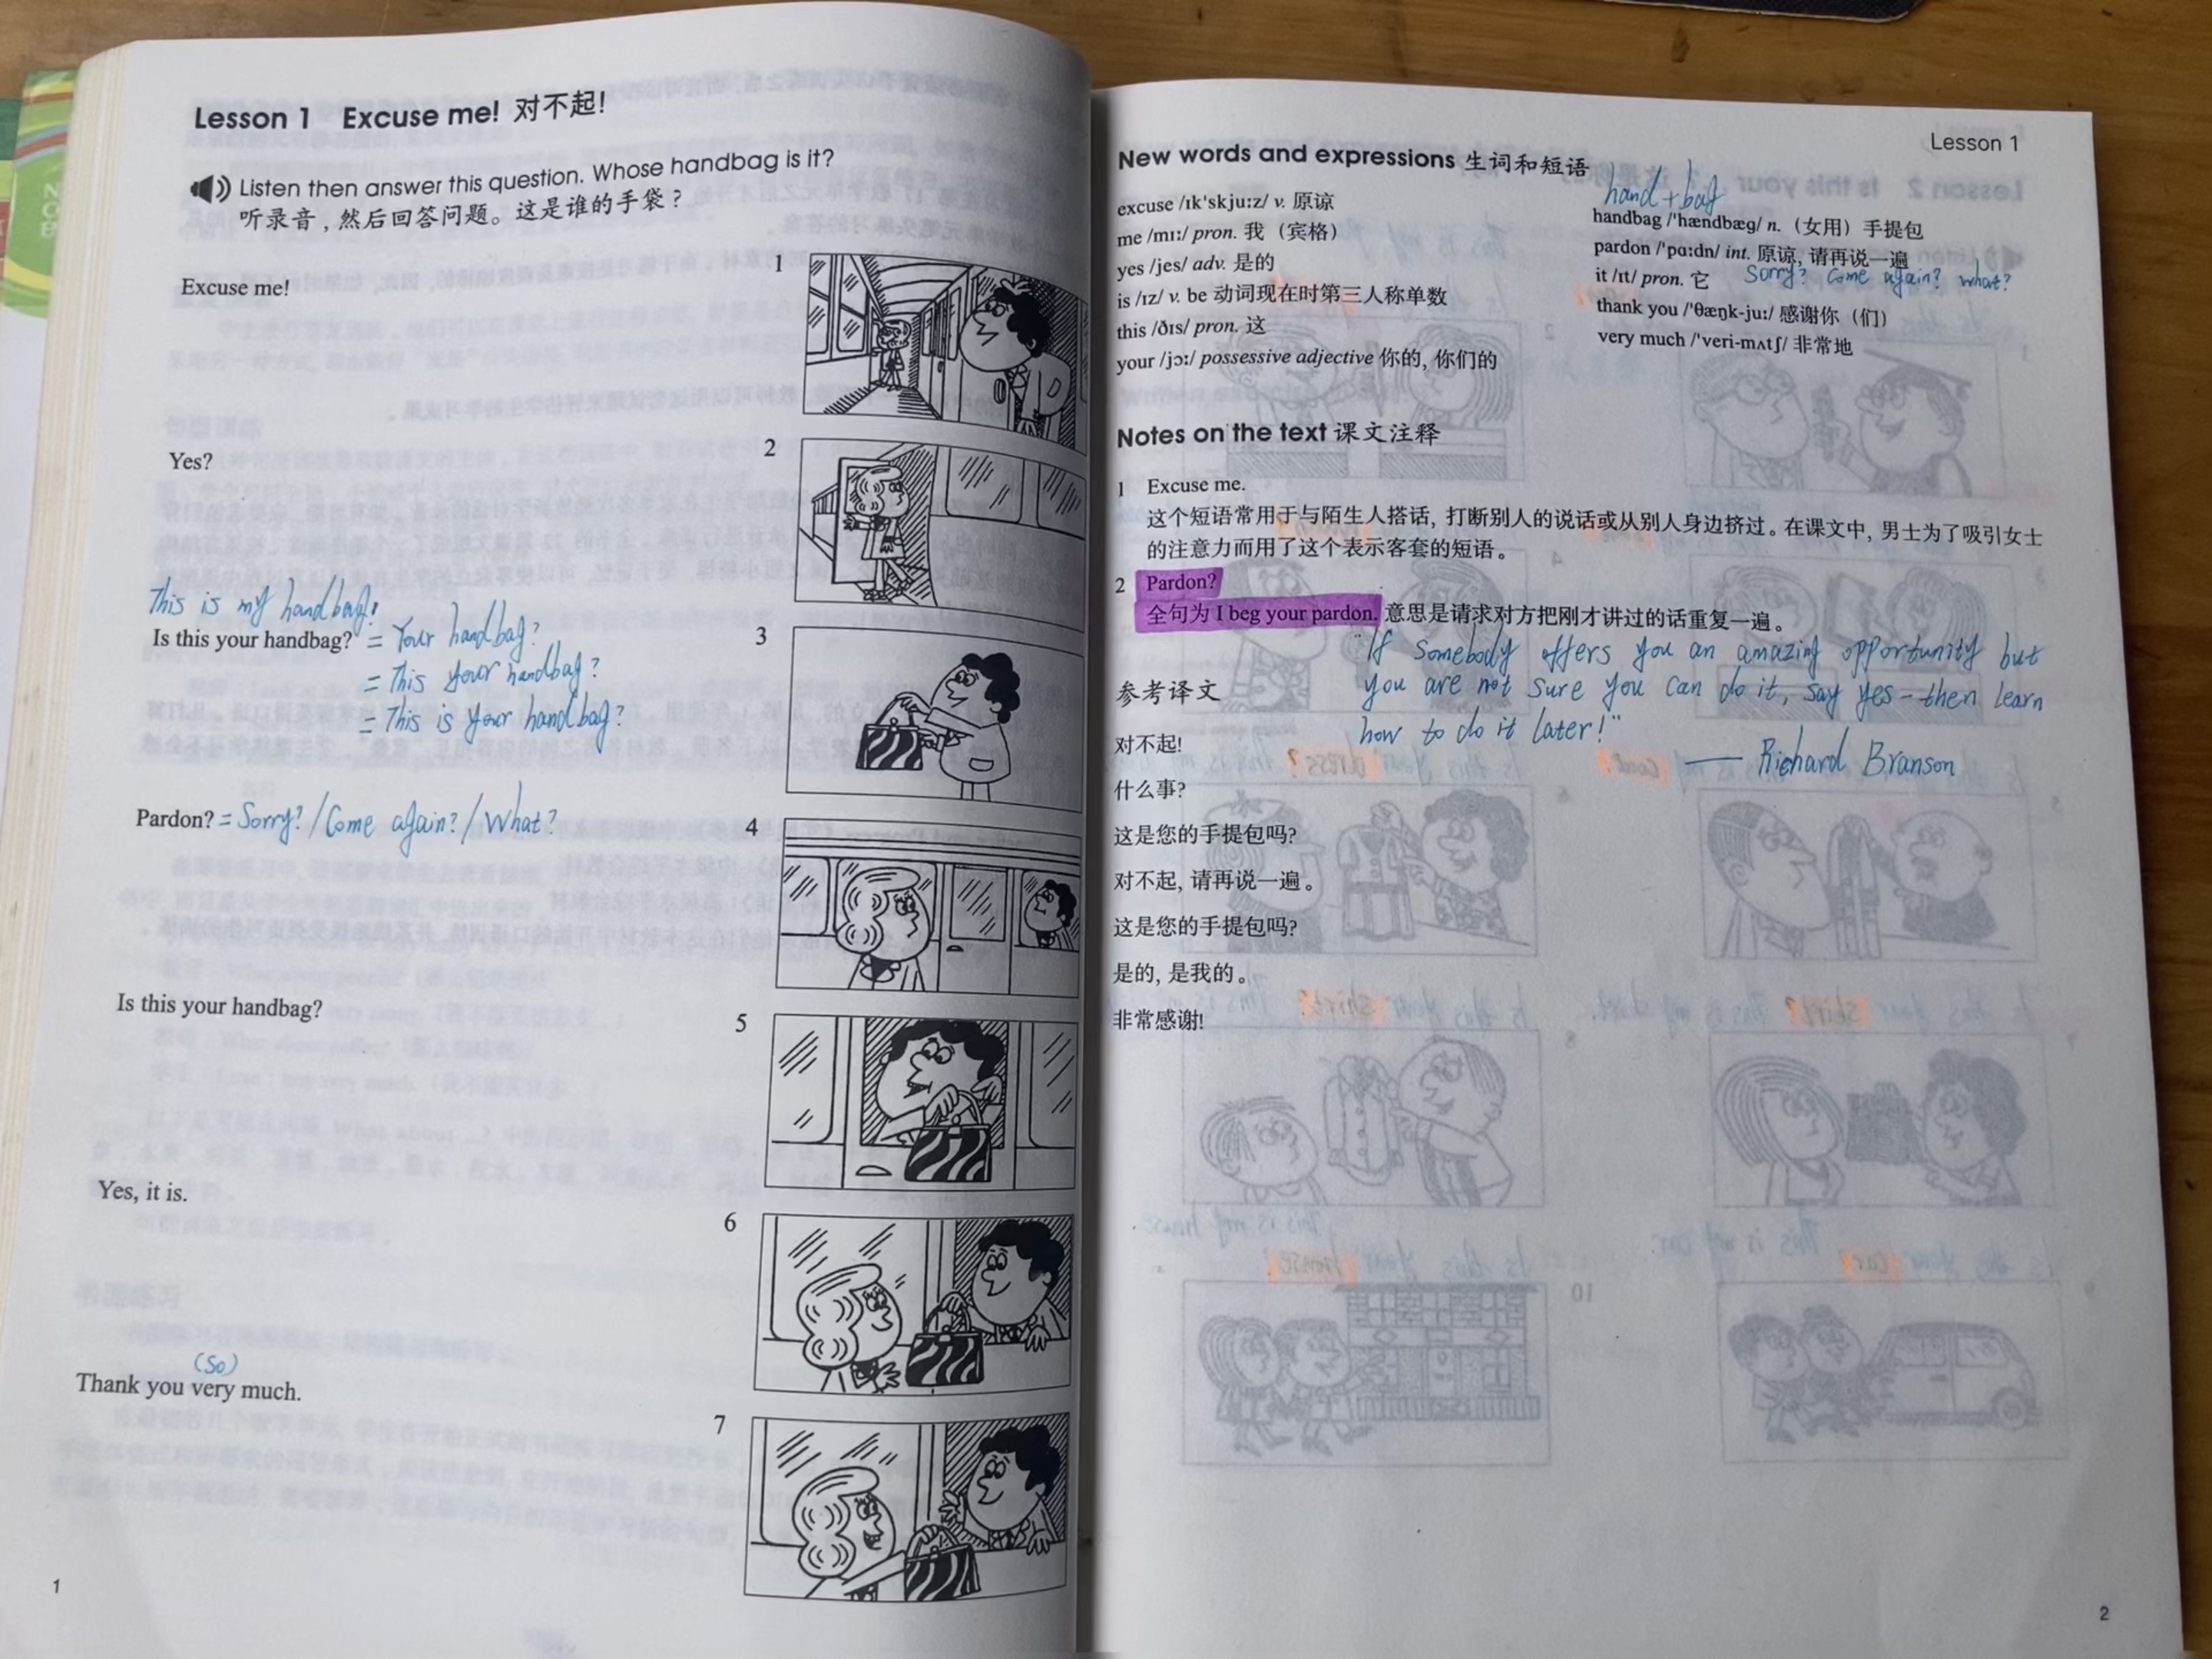 Lesson 1 Excuse me! 对不起!
Listen then answer this question. Whose handbag is it?
听录音,然后回答问题。这是谁的手袋?
Excuse me!
1
Yes?
2
This is my handbag!
Is this your handbag? = Your handbag?
= This your handbag?
= This is your handbag?
3
Pardon? = Sorry? / Come again? / What?
4
Is this your handbag?
5
Yes, it is.
6
(so)
Thank you very much.
7
1
Lesson 1
New words and expressions 生词和短语
excuse /ɪk'skju:z/ v. 原谅
me /mi:/ pron. 我(宾格)
yes /jes/ adv. 是的
is /ɪz/ v. be 动词现在时第三人称单数
this /ðɪs/ pron. 这
your /jɔ:/ possessive adjective 你的, 你们的
hand+bag
handbag /'hændbæg/ n.(女用)手提包
pardon /'pɑ:dn/ int. 原谅, 请再说一遍
it /ɪt/ pron. 它 Sorry? Come again? What?
thank you /'θæŋk-ju:/ 感谢你(们)
very much /'veri-mʌtʃ/ 非常地
Notes on the text 课文注释
1 Excuse me.
这个短语常用于与陌生人搭话, 打断别人的说话或从别人身边挤过。在课文中, 男士为了吸引女士
的注意力而用了这个表示客套的短语。
2 Pardon?
全句为 I beg your pardon. 意思是请求对方把刚才讲过的话重复一遍。
"If somebody offers you an amazing opportunity but
you are not sure you can do it, say yes - then learn
how to do it later!"
—— Richard Branson
参考译文
对不起!
什么事?
这是您的手提包吗?
对不起, 请再说一遍。
这是您的手提包吗?
是的, 是我的。
非常感谢!
2